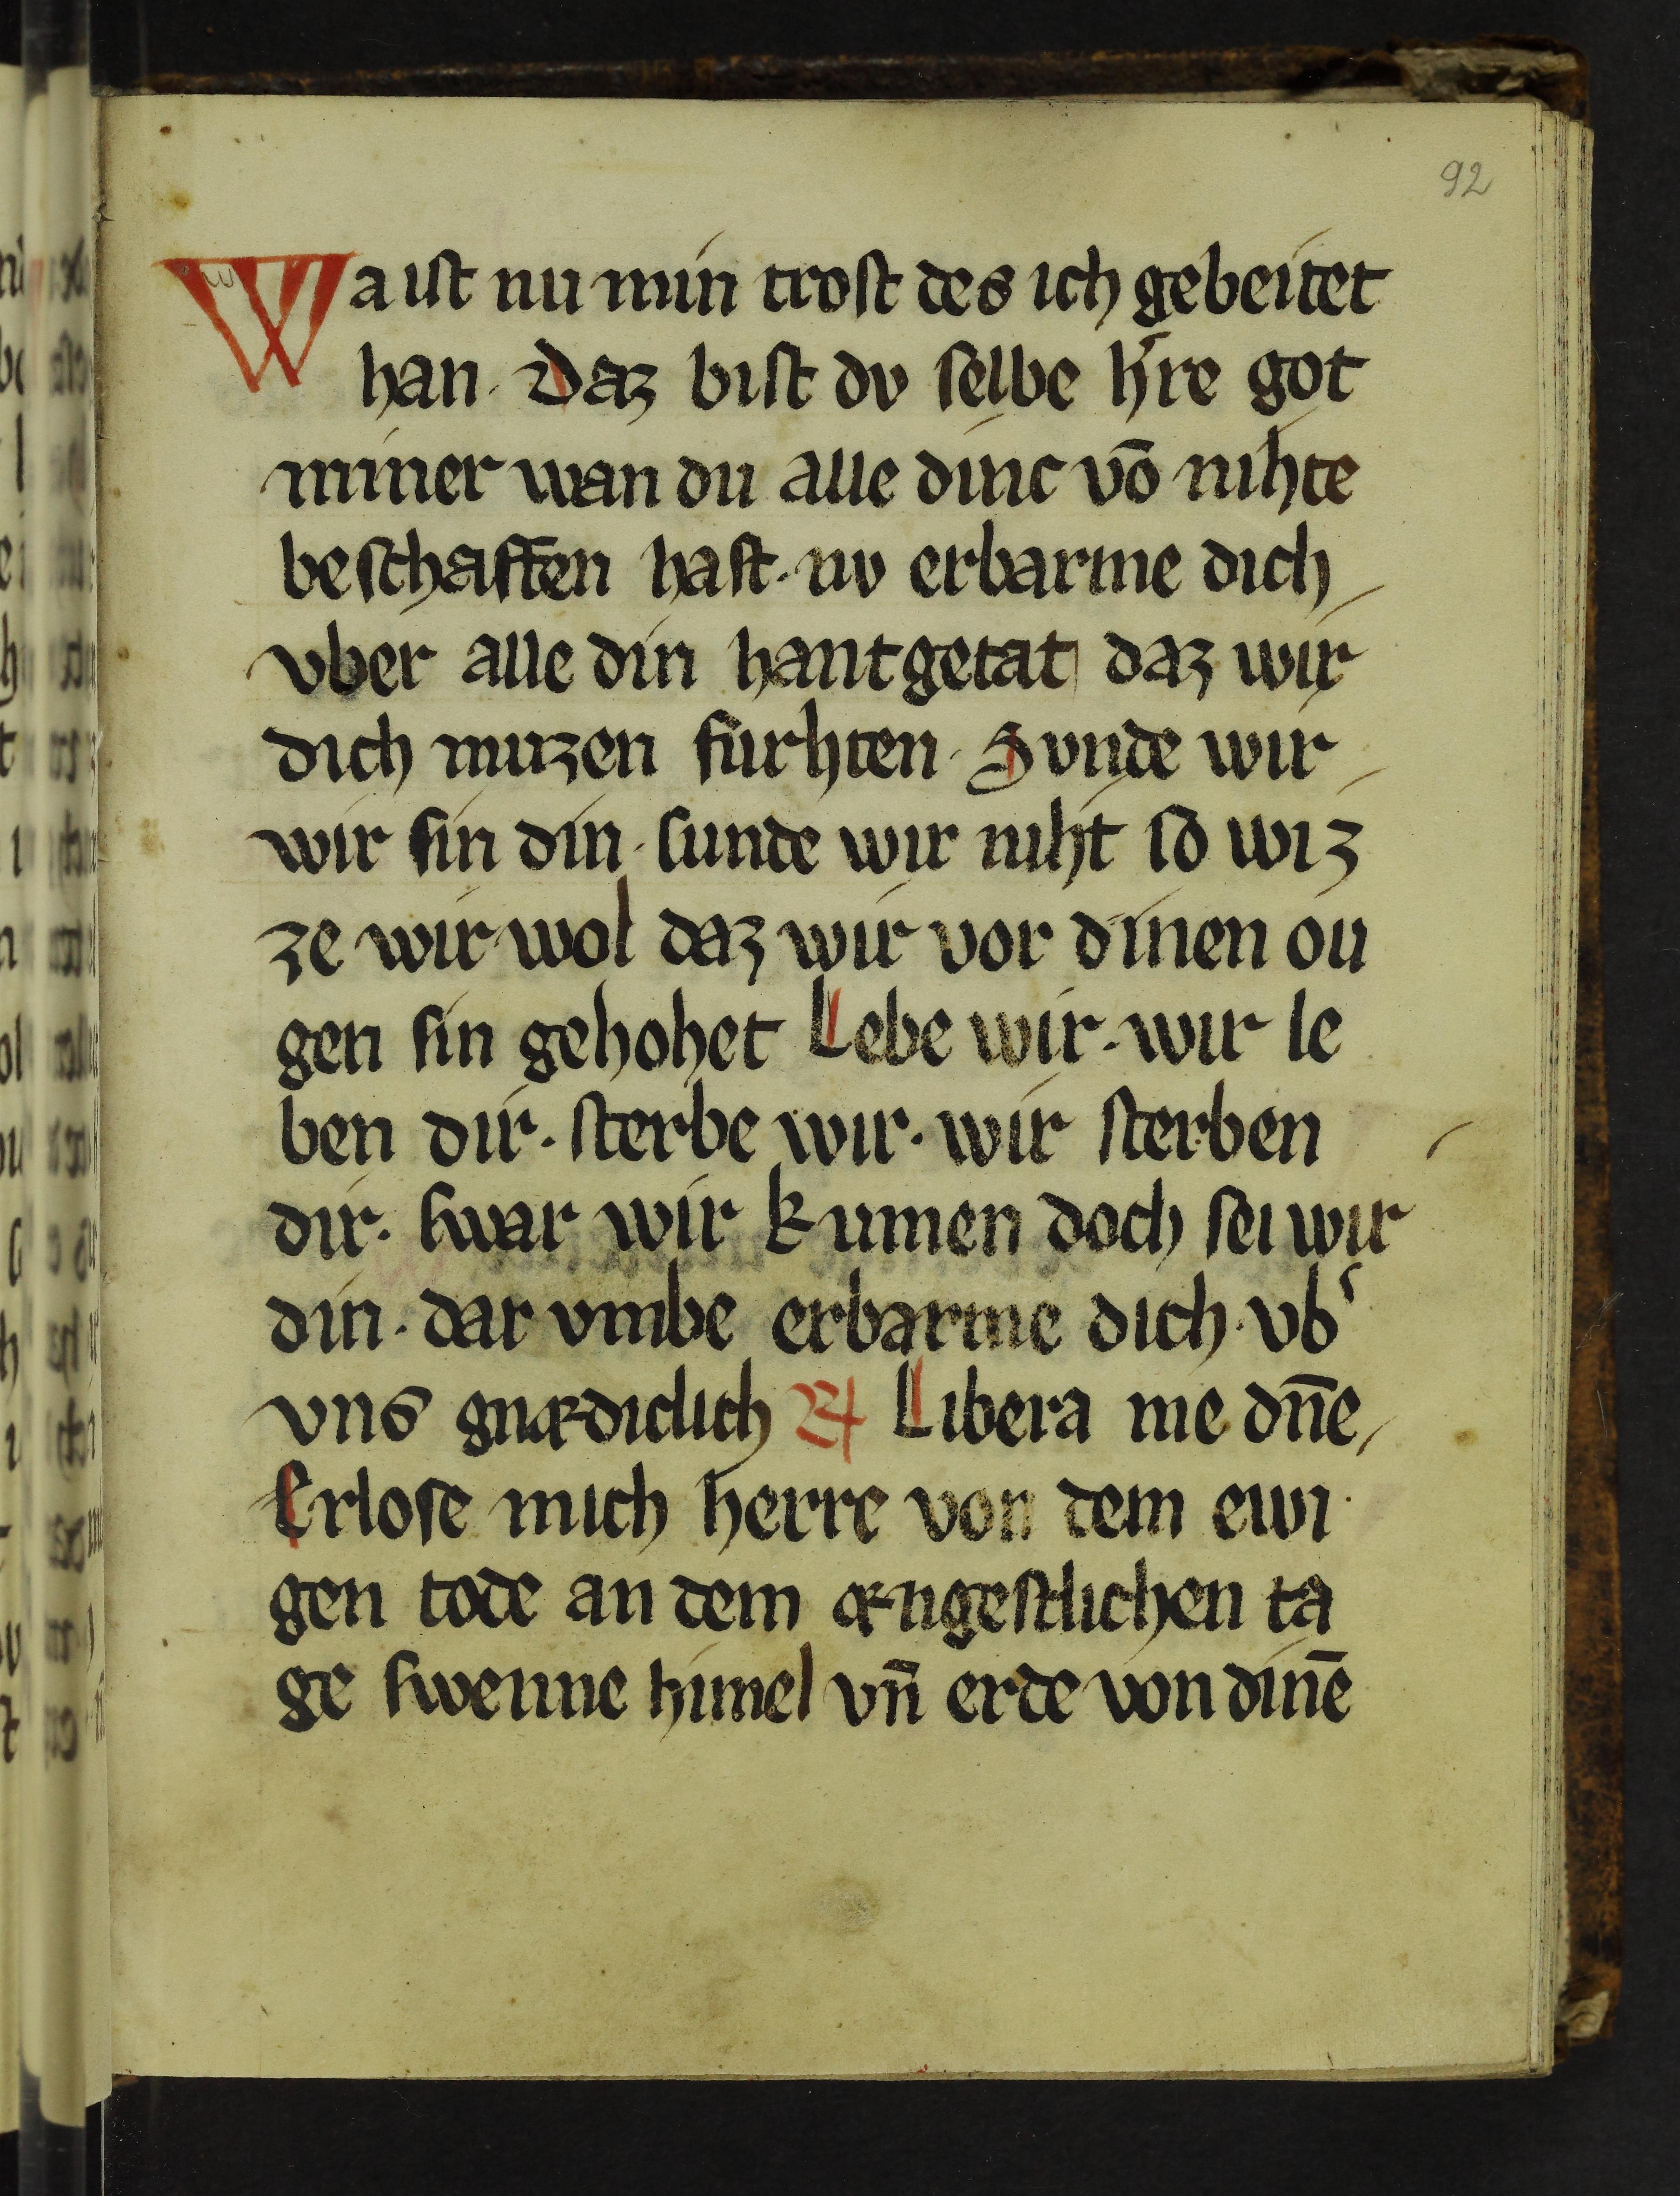 92
Wa ist nu min trost des ich gebeitet
han. Daz bist dv selbe h̾re got
miner wan du alle dinc vō nihte
beschaffen hast. nv erbarme dich
vber alle din hantgetat daz wir
dich muzen furhten. Sunde wir
wir sin din. sunde wir niht so wiz
ze wir wol daz wir vor dinen ou
gen sin gehohet Lebe wir. wir le
ben dir. sterbe wir. wir sterben
dir. swar wir kumen doch sei wir
din. dar vmbe erbarme dich. vb̾
vns gnædiclich ℟ Libera me dn̄e
Erlose mich herre von dem ewi
gen tode an dem ængestlichen ta
ge swenne himel vn̄ erde von dinē